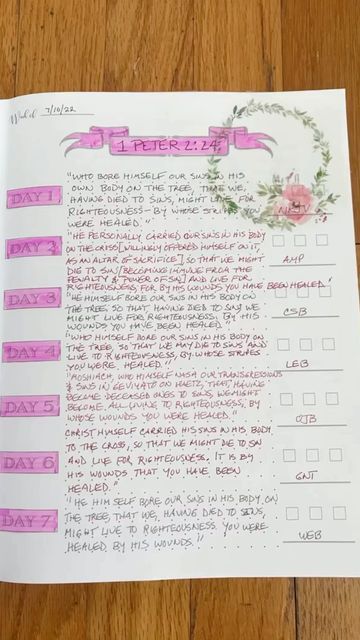 7/10/22
1 PETER 2:24
DAY 1
"WHO BORE HIMSELF OUR SINS IN HIS
OWN BODY ON THE TREE, THAT WE,
HAVING DIED TO SINS, MIGHT LIVE FOR
RIGHTEOUSNESS – BY WHOSE STRIPES YOU
WERE HEALED."
NKJV
DAY 2
"HE PERSONALLY CARRIED OUR SINS IN HIS BODY
ON THE CROSS [WILLINGLY OFFERED HIMSELF ON IT,
AS AN ALTAR OF SACRIFICE] SO THAT WE MIGHT
DIE TO SIN [BECOMING IMMUNE FROM THE
PENALTY & POWER OF SIN] AND LIVE FOR
RIGHTEOUSNESS; FOR BY HIS WOUNDS YOU HAVE BEEN HEALED."
AMP
DAY 3
"HE HIMSELF BORE OUR SINS IN HIS BODY ON
THE TREE, SO THAT, HAVING DIED TO SINS, WE
MIGHT LIVE FOR RIGHTEOUSNESS. BY HIS
WOUNDS YOU HAVE BEEN HEALED."
CSB
DAY 4
"WHO HIMSELF BORE OUR SINS IN HIS BODY ON
THE TREE, SO THAT WE MAY DIE TO SINS AND
LIVE TO RIGHTEOUSNESS, BY WHOSE STRIPES
YOU WERE HEALED."
LEB
DAY 5
"MOSHIACH, WHO HIMSELF NASA OUR TRANSGRESSIONS
& SINS IN GEVIYATO ON HAETZ, THAT, HAVING
BECOME DECEASED ONES TO SINS, WE MIGHT
BECOME ALL LIVING TO RIGHTEOUSNESS, BY
WHOSE WOUNDS YOU WERE HEALED."
OJB
DAY 6
CHRIST HIMSELF CARRIED HIS SINS IN HIS BODY
TO THE CROSS, SO THAT WE MIGHT DIE TO SIN
AND LIVE FOR RIGHTEOUSNESS. IT IS BY
HIS WOUNDS THAT YOU HAVE BEEN
HEALED."
GNT
DAY 7
"HE HIMSELF BORE OUR SINS IN HIS BODY ON
THE TREE, THAT WE, HAVING DIED TO SINS,
MIGHT LIVE TO RIGHTEOUSNESS. YOU WERE
HEALED BY HIS WOUNDS."
WEB